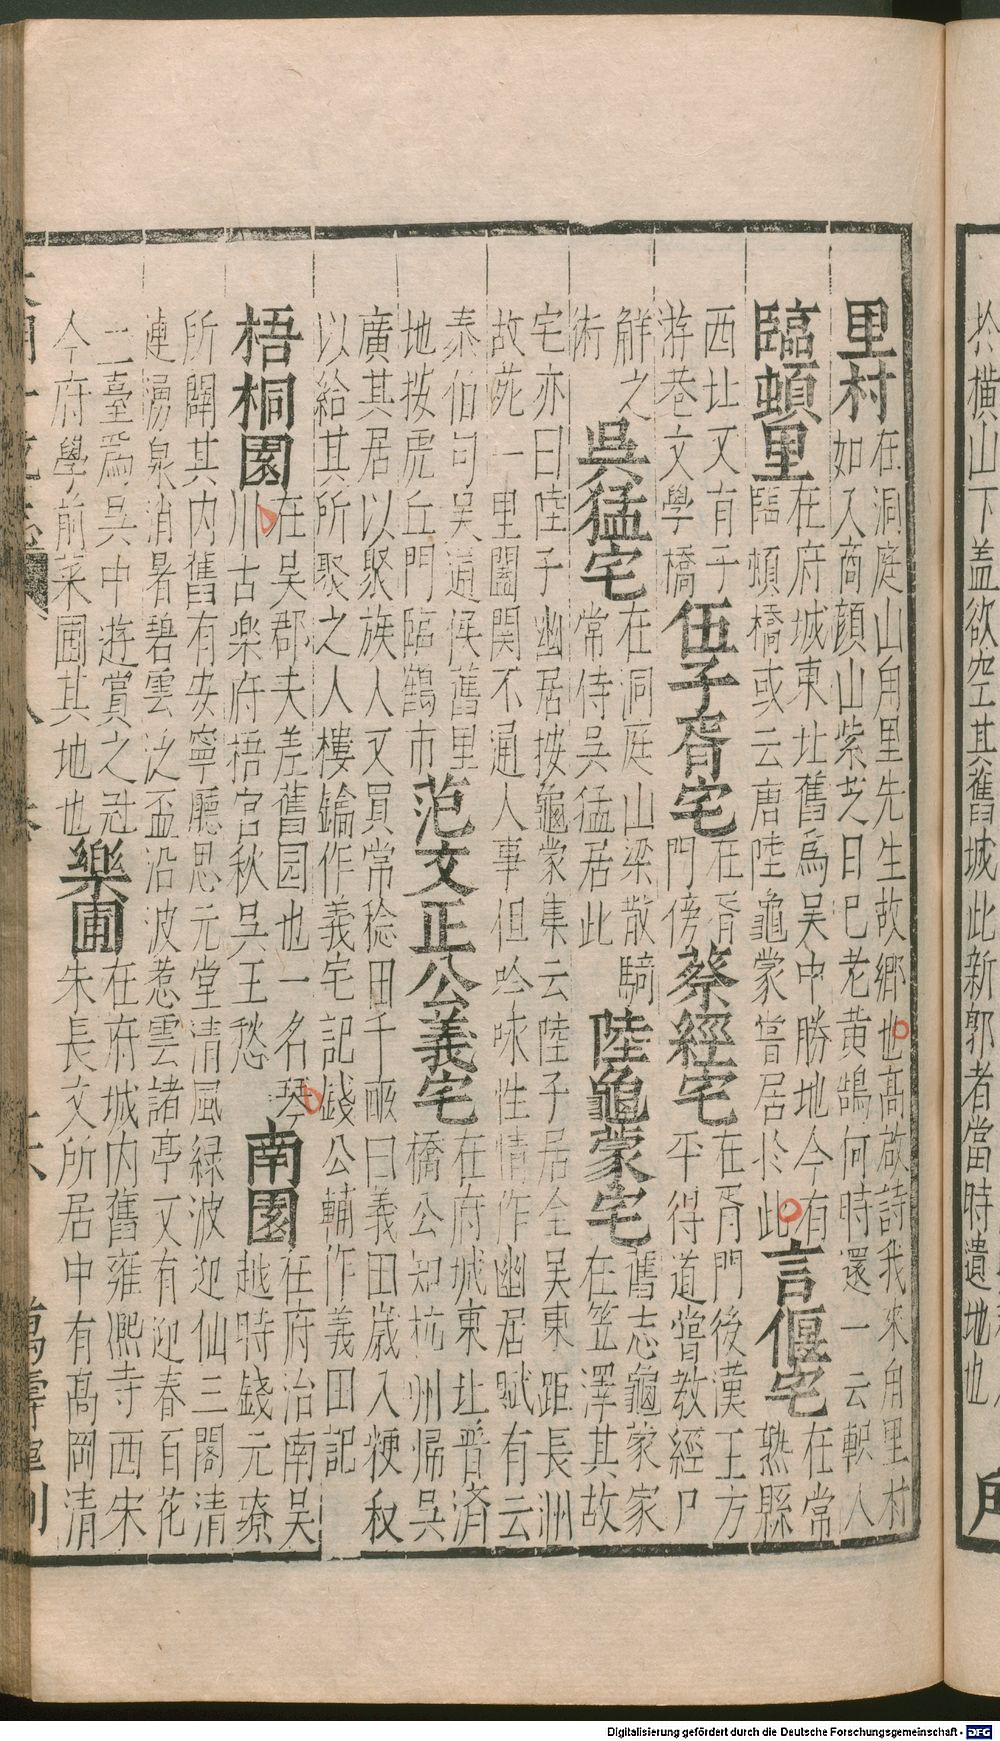 於橫山下蓋欲空其舊城此新郭者當時遺地也
角
里村
在洞庭山角里先生故鄉也高啟詩我來角里村
如入商顔山紫芝日已老黃鵠何時還一云軹人
臨頓里
在府城東北舊爲吳中勝地今有
臨頓橋或云唐陸龜蒙嘗居於此
言偃宅
在常
熟縣
西北又有子
游巷文學橋
伍子胥宅
在胥
門傍
蔡經宅
在胥門後漢王方
平得道嘗教經尸
解之
術
吳猛宅
在洞庭山梁散騎
常侍吳猛居此
陸龜蒙宅
舊志龜蒙家
在笠澤其故
宅亦曰陸子幽居按龜蒙集云陸子居全吳東距長洲
故苑一里闔関不通人事但吟咏性情作幽居賦有云
泰伯句吳通侯舊里
地按虎丘門臨鶴市
范文正公義宅
在府城東北晋済
橋公知杭州帰吳
廣其居以聚族人又買常稔田千畝曰義田歳入粳
以給其所聚之人樓鑰作義宅記錢公輔作義田記
梧桐園
在吳郡夫差舊园也一名琴
川古楽府梧宮秋吳王愁
南園
在府治南吳
越時錢元寮
所闢其内舊有安寧廳思元堂清風緑波迎仙三閣清
漣湧泉消暑碧雲泛盃沿波惹雲諸亭又有迎春百花
二臺爲吳中遊賞之冠
今府學前菜圃其地也
樂圃
在府城内舊雍熙寺西宋
朱長文所居中有高岡清
萬壽
Digitalisierung gefördert durch die Deutsche Forschungsgemeinschaft - DFG